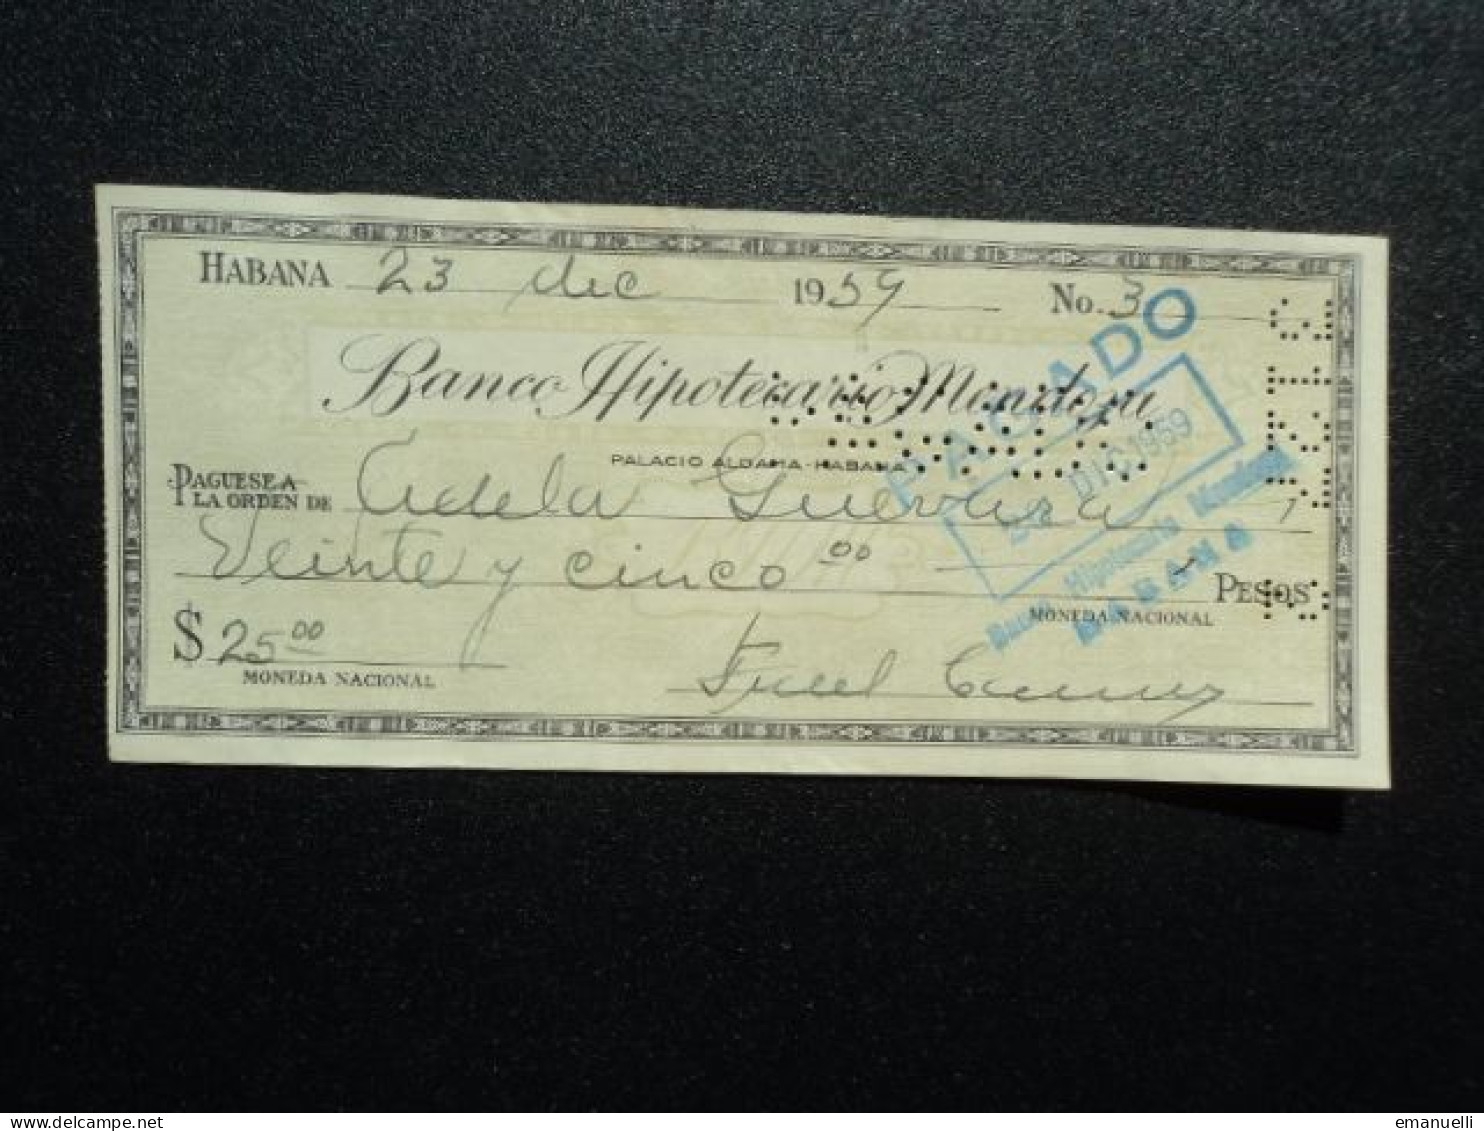 HABANA 23 dic 1959 No. 3
Banco Hipotecario Mendoza
PALACIO ALDAMA-HABANA
PAGUESE A
LA ORDEN DE Adela Guevara
Veinte y cinco 00 PESOS
MONEDA NACIONAL
$ 25 00
MONEDA NACIONAL
Fidel
PAGADO
DIC 1959
Banco Hipotecario Mendoza
HABANA
delcampe.net
emanuelli